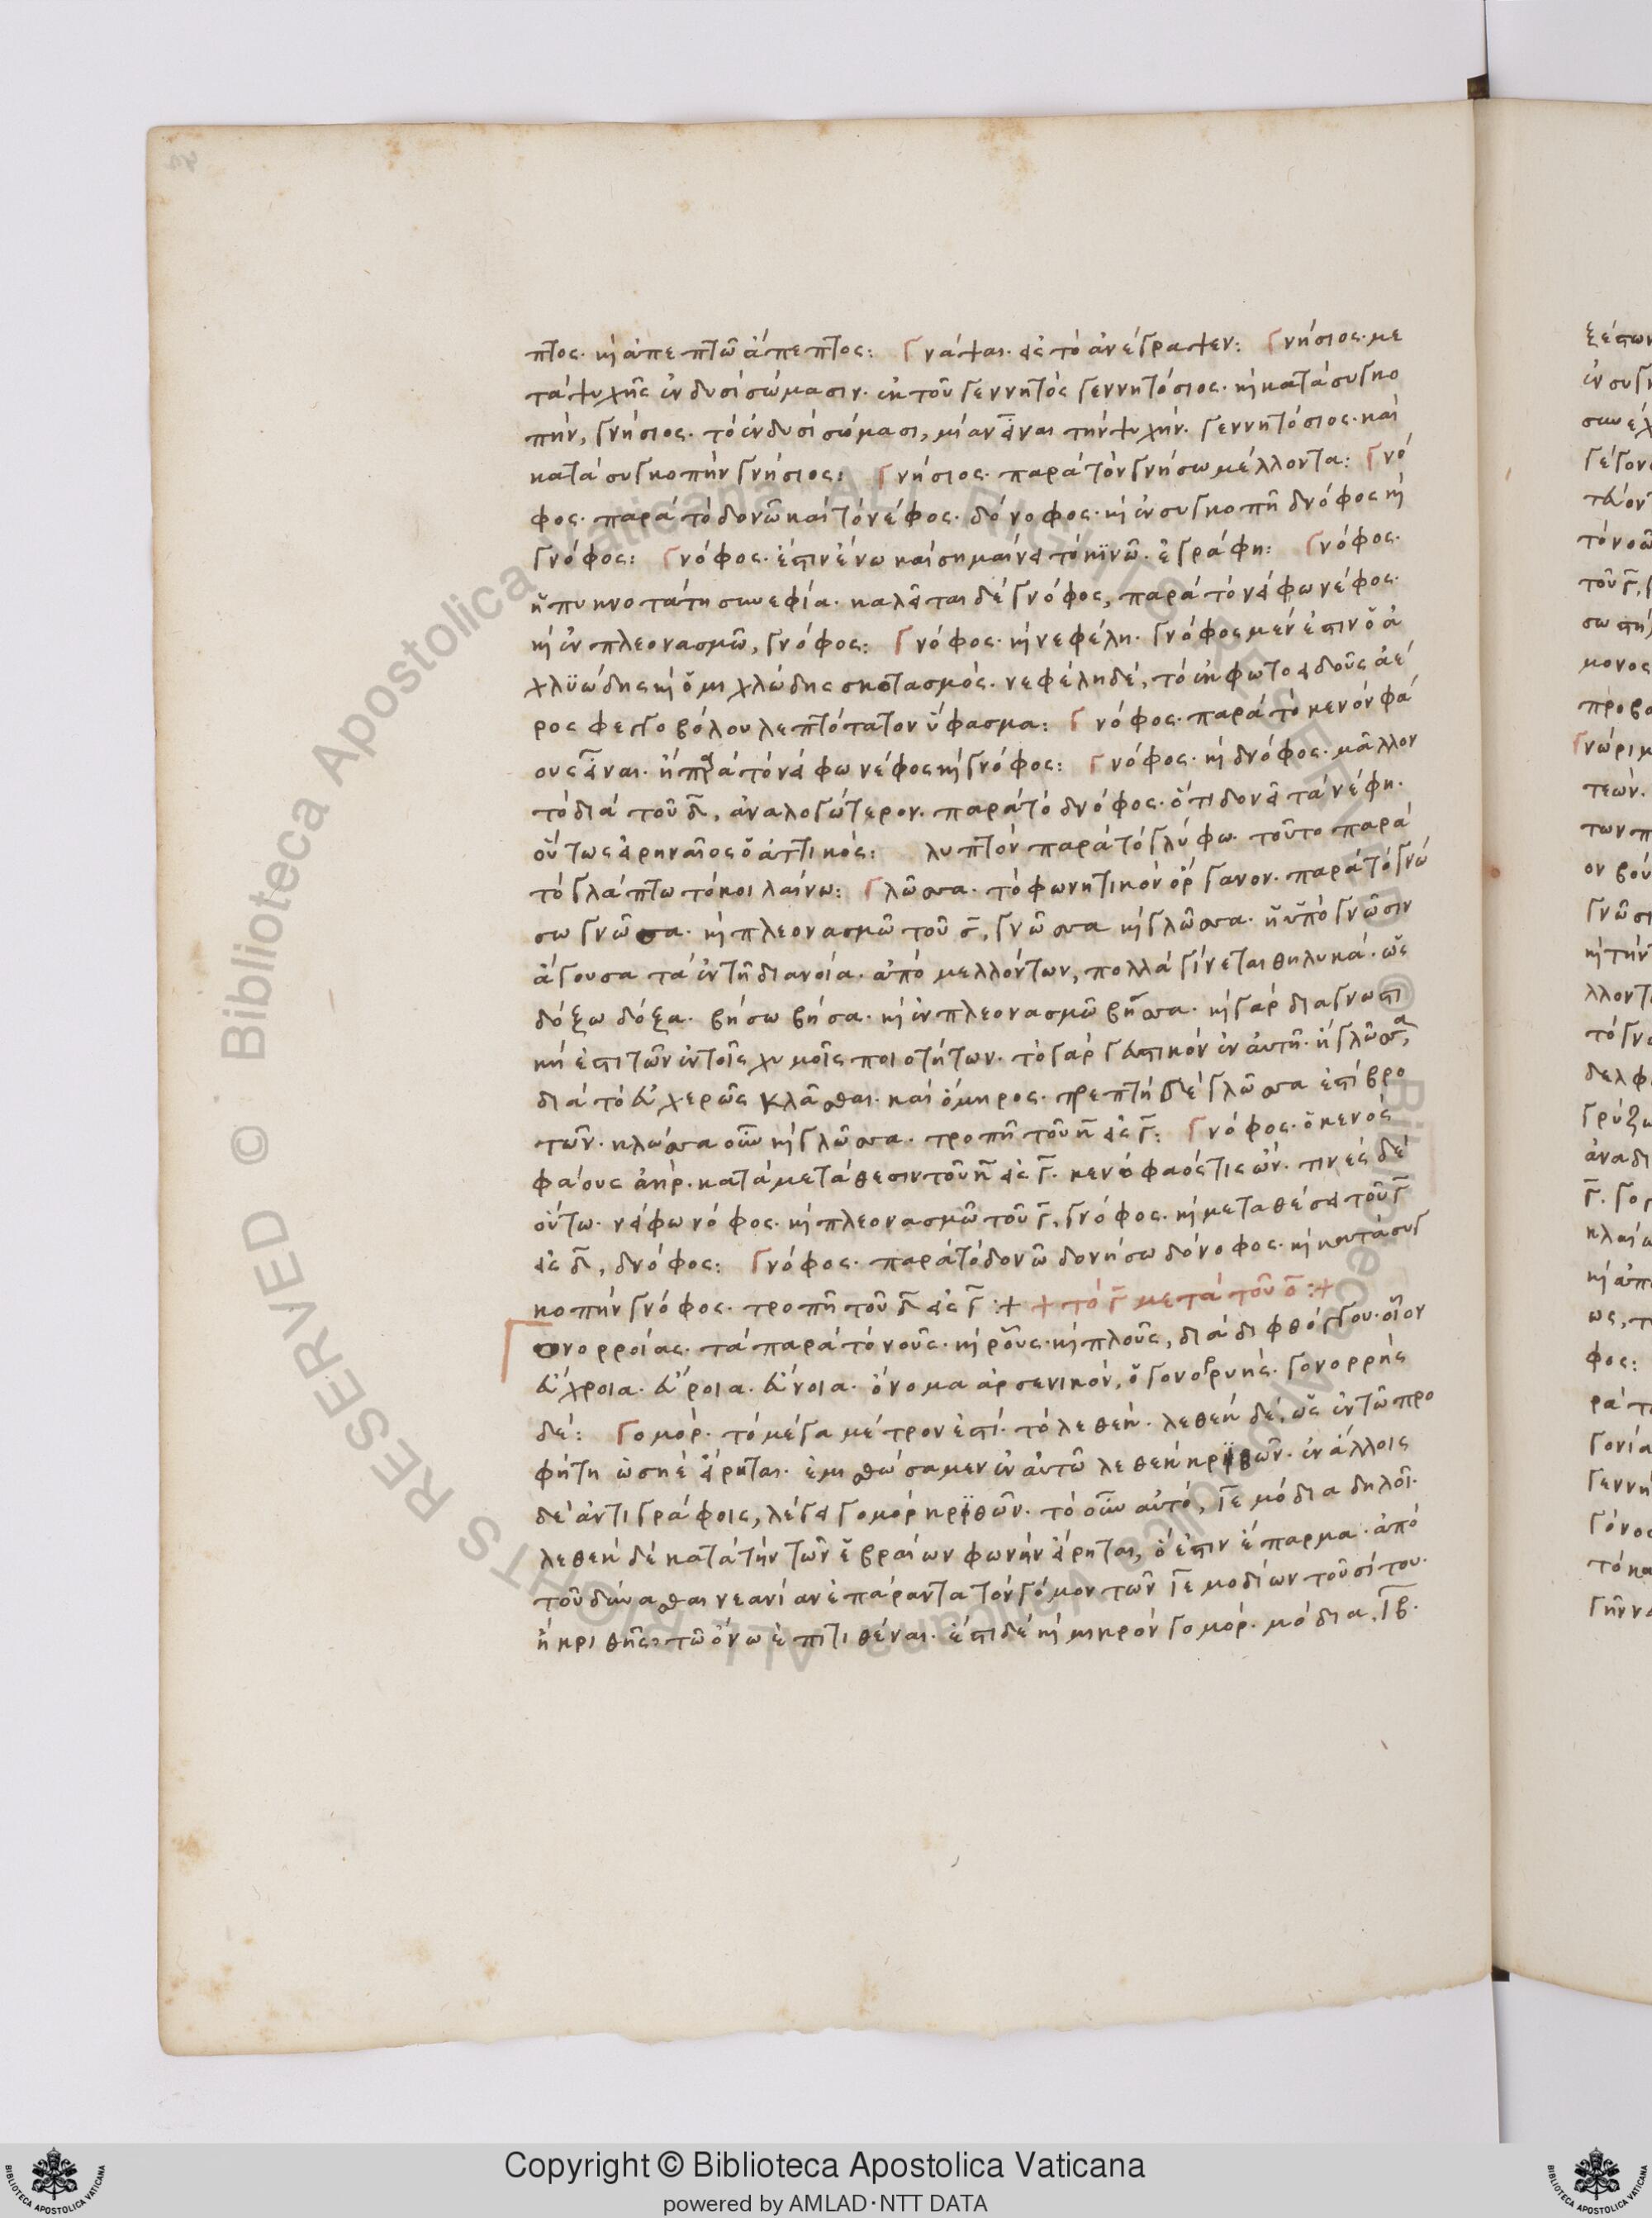 πτος· κὶ ἀπεπτῶ ἄπεπτος: Γνάψαι· εἰς τὸ ἀνέγραψεν: Γνήσιος· με
τὰ ψυχῆς ἐν δυσὶ σώμασιν· ἐκ τοῦ γεννητὸς γεννητόσιος· κὶ κατὰ συγκο
πὴν, γνήσιος· τὸ ἐν δυσὶ σώμασι, μίαν εἶναι τὴν ψυχήν· γεννητόσιος· καὶ
κατὰ συγκοπὴν γνήσιος: Γνήσιος· παρὰ τὸν γνήσω μέλλοντα: Γνό
φος· παρὰ τὸ δονῶ καὶ τὸ νέφος· δόνοφος· κὶ ἐν συγκοπῆ δνόφος κὶ
γνόφος: Γνόφος· ἔστιν ἔνω καὶ σημαίνει τὸ κϊνῶ· ἐγράφη: Γνόφος·
ἡ πυκνοτάτη συνεφία· καλεῖται δὲ γνόφος, παρὰ τὸ νείφω νέφος·
κὶ ἐν πλεονασμῶ, γνόφος: Γνόφος· κὶ νεφέλη· γνόφος μέν ἐστιν ὁ ἀ
χλϋώδης κὶ ὁμιχλώδης σκοτασμός· νεφέλη δὲ, τὸ ἐκ φωτοειδοῦς ἀέ
ρος φεγγοβόλου λεπτότατον ὕφασμα: Γνόφος· παρὰ τὸ κενὸν φά
ους εἶναι· ἢ παρὰ τὸ νείφω νέφος κὶ γνόφος: Γνόφος· κὶ δνόφος· μᾶλλον
τὸ διὰ τοῦ δ, ἀναλογώτερον· παρὰ τὸ δνόφος· ὅτι δονεῖ τὰ νέφη·
οὕτως εἰρηναῖος ὁ ἀττικός: λυπτὸν παρὰ τὸ γλύφω· τοῦτο παρὰ
τὸ γλάπτω τὸ κοιλαίνω: Γλῶσσα· τὸ φωνητικὸν ὄργανον· παρὰ τὸ γνώ
σω γνῶσα· κὶ πλεονασμῶ τοῦ σ, γνῶσσα κὶ γλῶσσα· ἡ ὑπὸ γνῶσιν
ἄγουσα τὰ ἐν τῆ διανοία· ἀπὸ μελλόντων, πολλὰ γίνεται θηλυκά· ὡς
δόξω δόξα· βήσω βήσα· κὶ ἐν πλεονασμῶ βῆσσα· κὶ γὰρ διαγνωστι
κή ἐστι τῶν ἐν τοῖς χυμοῖς ποιοτήτων· τὸ γὰρ γευστικὸν ἐν αὐτῆ· ἡ γλῶσσα,
διὰ τὸ εὐχερῶς κλᾶσθαι· καὶ ὅμηρος· στρεπτὴ δὲ γλῶσσα ἐστὶ βρο
τῶν· κλώσσα οὖν κὶ γλῶσσα· τροπῆ τοῦ κ εἰς γ: Γνόφος· ὁ κενὸς
φάους ἀήρ· κατὰ μετάθεσιν τοῦ κ εἰς γ· κενοφαός τις ὤν· τινὲς δὲ
οὕτω· νείφω νόφος· κὶ πλεονασμῶ τοῦ γ, γνόφος· κὶ μεταθέσει τοῦ γ
εἰς δ, δνόφος: Γνόφος· παρὰ τὸ δονῶ δονήσω δόνοφος· κὶ κατὰ συγ
κοπὴν γνόφος· τροπῆ τοῦ δ εἰς γ :+ + τὸ γ μετὰ τοῦ ο :+
Γονορροίας· τὰ παρὰ τὸ νοῦς· κὶ ῥοῦς· κὶ πλοῦς, διὰ διφθόγγου· οἷον
εὔχροια· εὔροια· εὔνοια· ὄνομα ἀρσενικὸν, ὁ γονορρυής· γονορρὴς
δέ: Γομόρ· τὸ μέγα μέτρον ἐστί· τὸ λεθέκ· λεθὲκ δὲ, ὡς ἐν τῶ προ
φήτη ὡσηὲ εἴρηται· ἐμισθωσάμεν ἐν αὐτῶ λεθὲκ κρϊθῶν· ἐν ἄλλοις
δὲ ἀντιγράφοις, λέγει γομὸρ κρϊθῶν· τὸ οὖν αὐτὸ, ιε μόδια δηλοῖ·
λεθὲκ δὲ κατὰ τὴν τῶν ἑβραίων φωνὴν εἴρηται, ὅ ἐστιν ἔπαρμα· ἀπὸ
τοῦ δύνασθαι νεανίαν ἐπάραντα τὸν γόμον τῶν ιε μοδίων τοῦ σίτου·
ἢ κριθῆς, τῶ ὄνω ἐπιτιθέναι· ἔστι δὲ κὶ μικρὸν γομόρ· μόδια, ιβ·